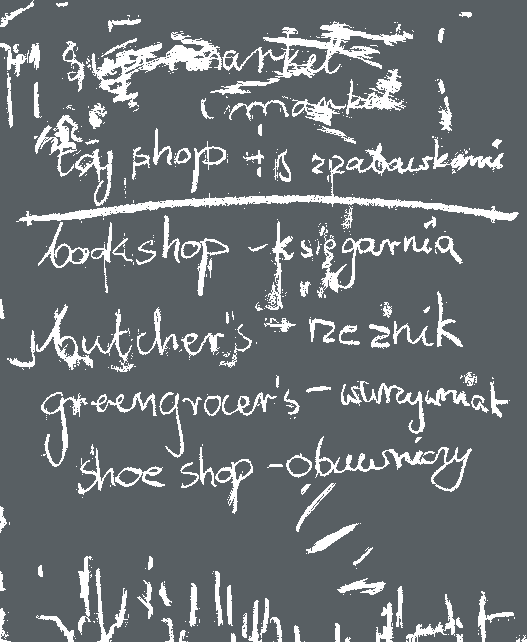 supermarket
market
toy shop - s zabawkami
bookshop - księgarnia
butcher's - rzeźnik
greengrocer's - warzywniak
shoe shop - obuwniczy